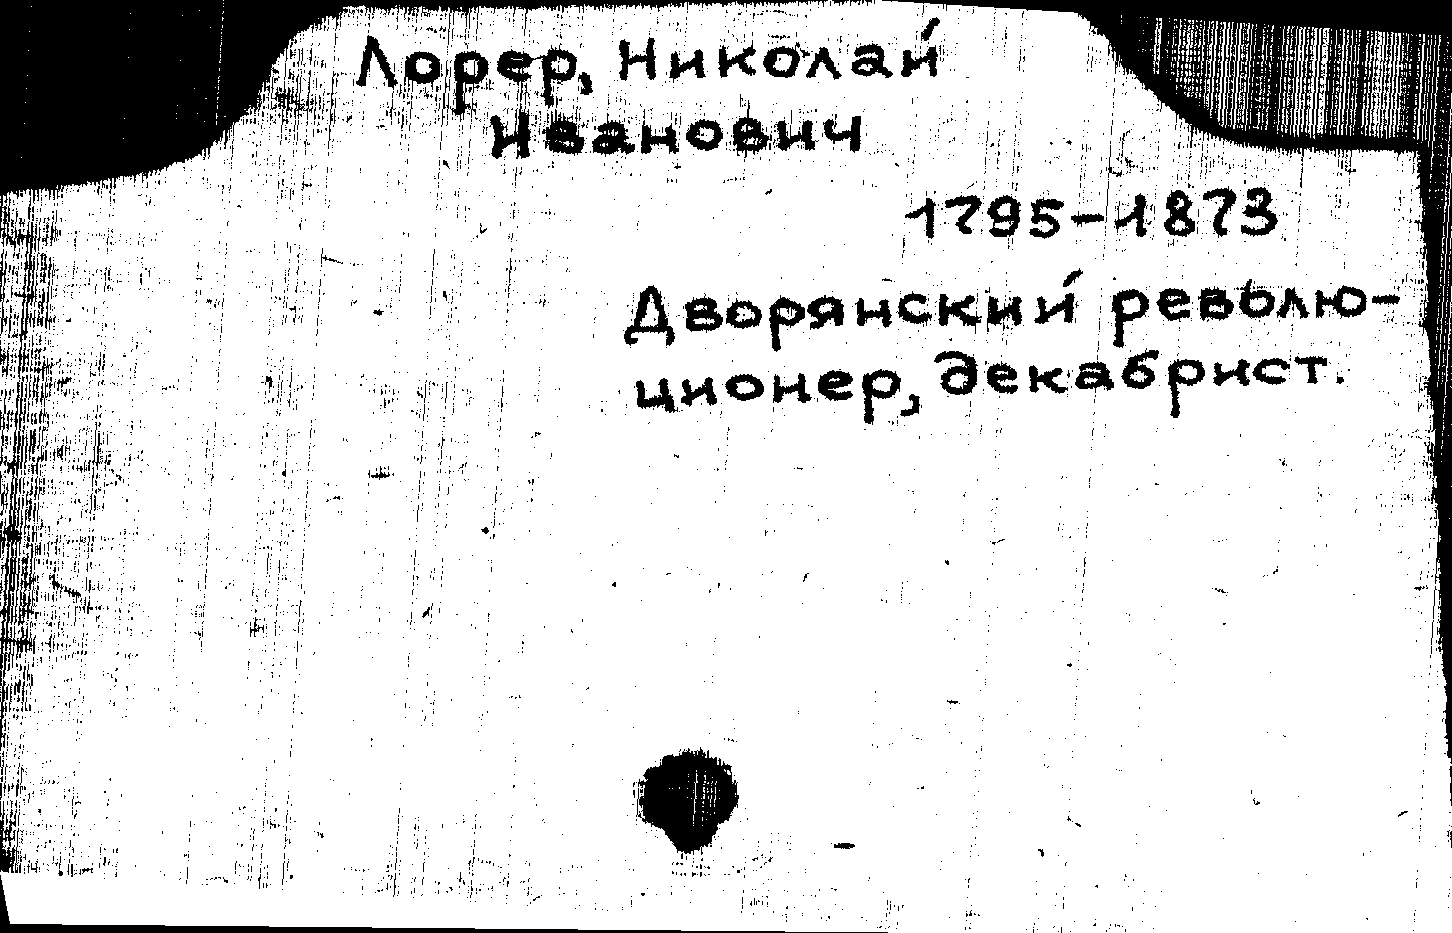 Лорер, Николай
Иванович
1795-1873
Дворянский револю-
ционер, декабрист.